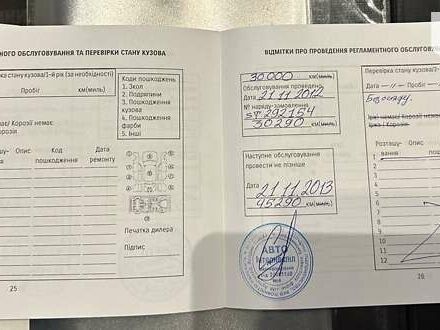 НОГО ОБСЛУГОВУВАННЯ ТА ПЕРЕВІРКИ СТАНУ КУЗОВА
рка стану кузова/1-й рік (за необхідності)
Пробіг км(миль)
має/ Корозії немає
орозія
шу- Опис Код Дата
я пошкодження ремонту
Коди пошкоджень
1. Зкол
2. Подряпини
3. Пошкодження
кузова
4. Пошкодження
фарби
5. Інші
Печатка дилера
Підпис
25
ВІДМІТКИ ПРО ПРОВЕДЕННЯ РЕГЛАМЕНТНОГО ОБСЛУГОВУ
30.000 км(миль)
Обслуговування проведено
Дата 21.11.2012
№ наряду-замовлення
292154
30290 км(миль)
Наступне обслуговування
провести не пізніше
Дата
21.11.2013
45290 км(миль)
АВТО
Інтернешнл
Перевірка стану кузова/1-й
Дата Пробіг
Іржі немає/ Корозії немає
Іржа / Корозія
Розташу- Опис
вання пошкодження
1
2
3
4
5
6
7
8
9
10
11
12
26